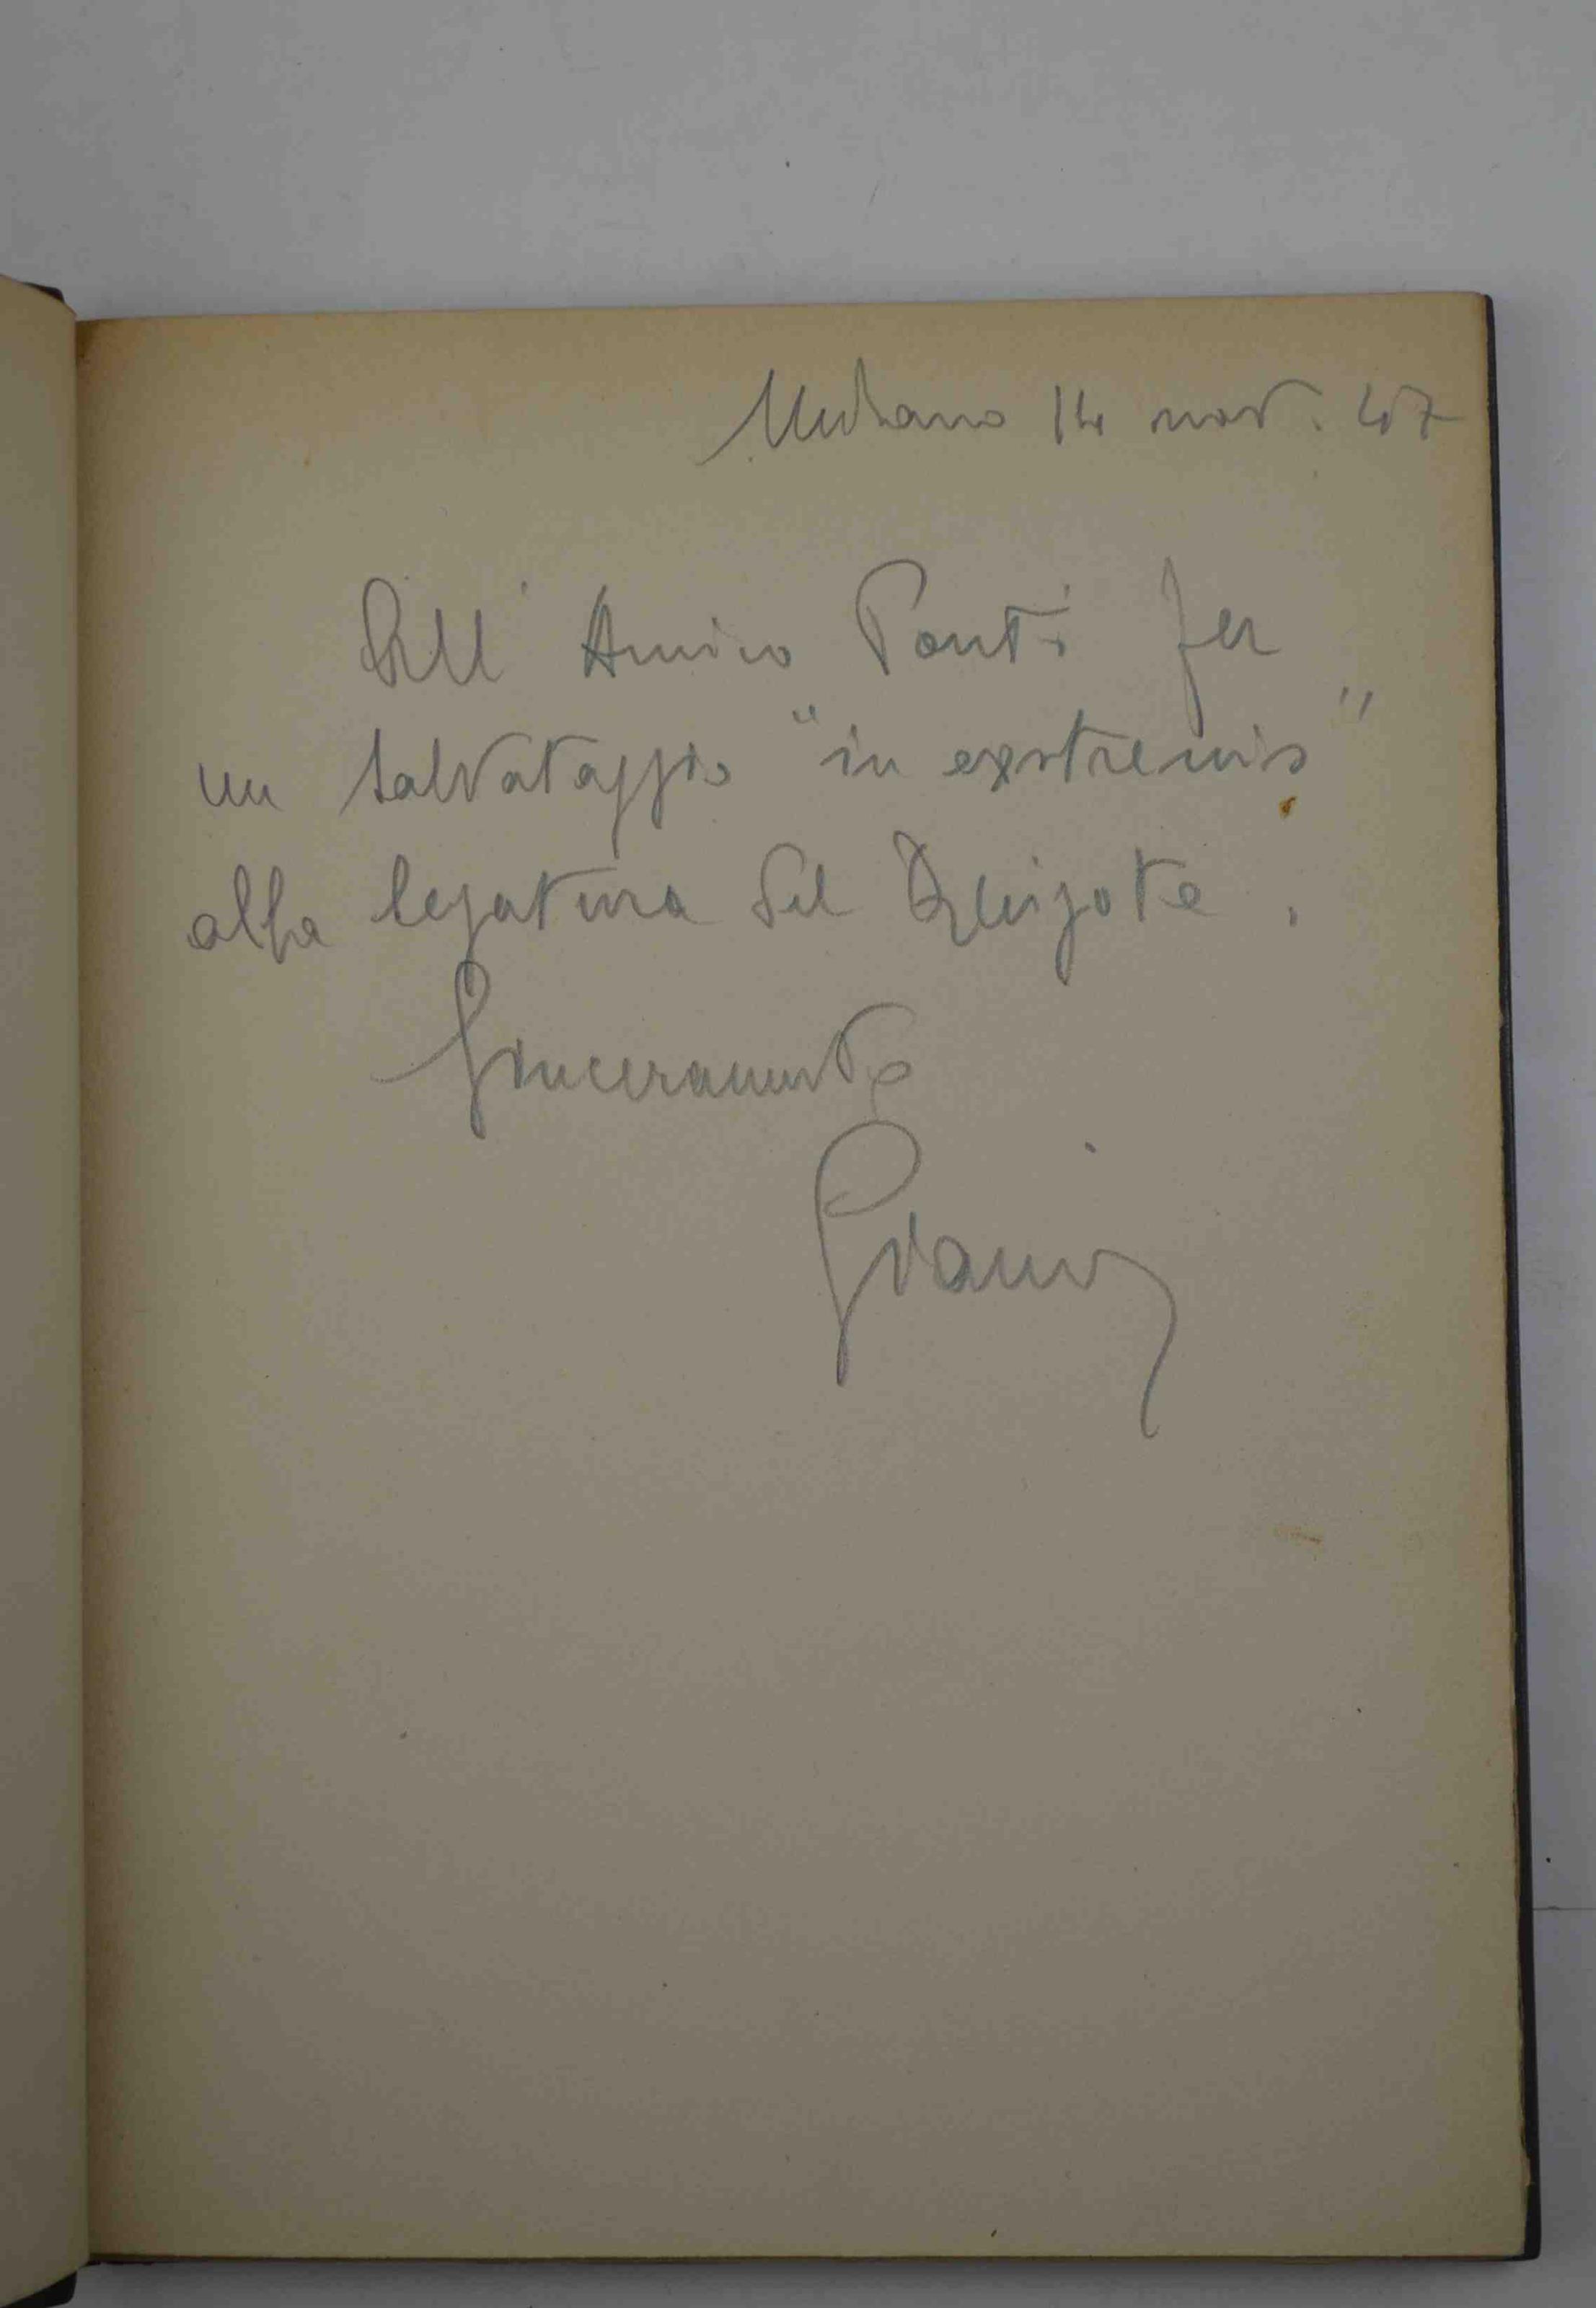 Milano 14 nov. 47
All' Amico Ponti per
un salvataggio "in exstremis"
alla legatura del Quijote.
Sinceramente
Gianni